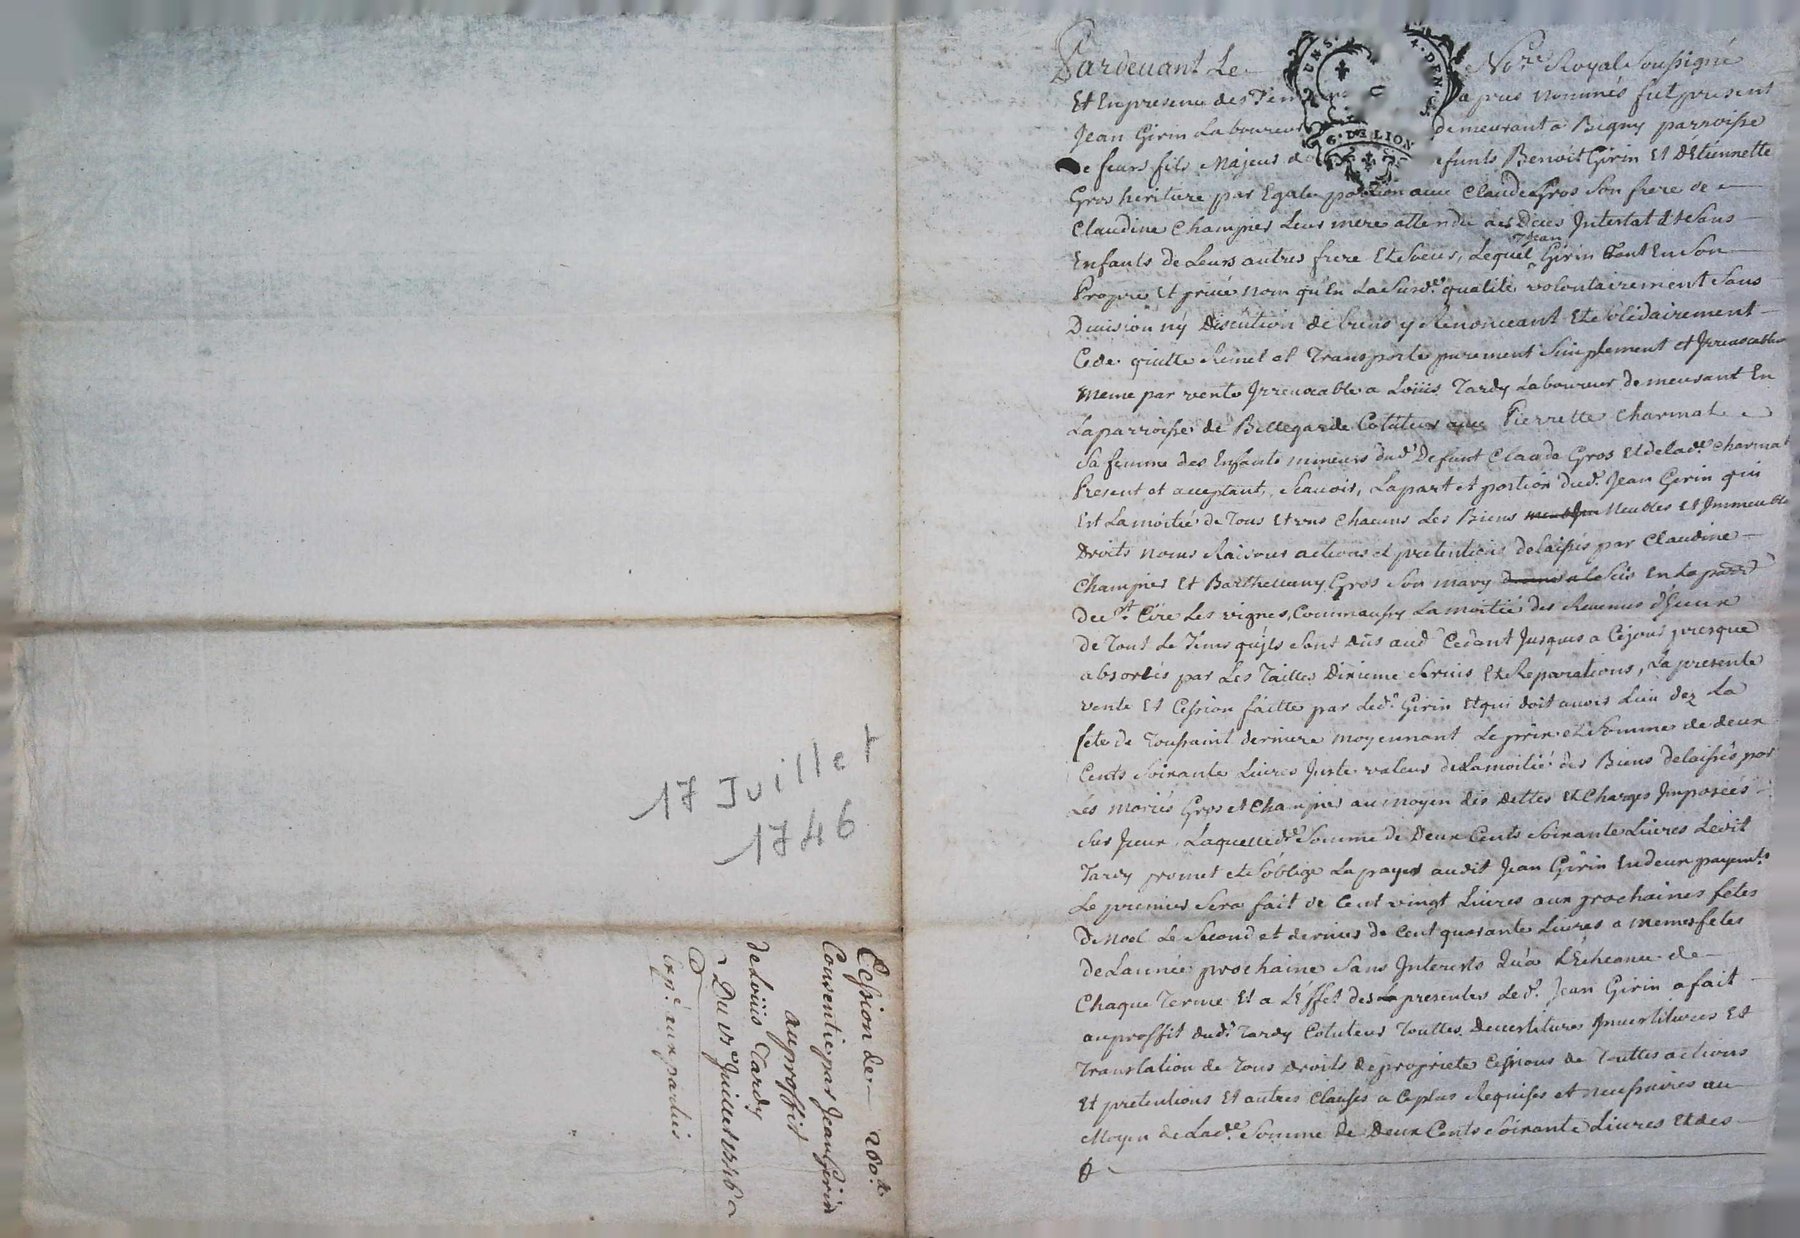 Pardevant Le Nore. Royal Soussigné
Et Enpresence des Tem apres nommés fut present
Jean Girin Laboureur demeurant a Bigny parroisse
de feurs fils Majeur de efunts Benoit Girin Et D'Etiennette
Gros heritiere par Egale portion avec Claude Gros Son frere de
Claudine Champier Leur mere attendu Deces Intestat Et Sans
Enfants de Leurs autres frere Et Soeur, Lequel Jean Girin Tant En Son
Propre Et privé nom qu'En La Susde. qualité volontairement Sans
Division ny Discution de biens y Renonceant Et Solidairement
Cede quitte Remet et Transporte purement Simplement et
meme par vente Irrevocable a Loüis Tardy Laboureur demeurant En
La parroisse de Bellegarde Cotuteur avec Pierrette Charmat
Sa femme des Enfants mineurs dud. Defunt Claude Gros Et de lade. Charmat
Present et acceptant, Scavoir, La part et portion dud. Jean Girin qui
Est La moitié de Tous Et uns Chacuns Les Biens Meubles Et Immeubles
Droits noms Raisons actions et pretentions delaissés par Claudine
Champier Et Barthellemy Gros Son mary En La
de St. Cire Les vignes, Comm'aussy La moitié des Revenus d'Iceux
de Tout Le Tems qu'jls Sont dûs aud. Cedant Jusques a Cejour presque
absorbés par Les Tailles Dixieme Servis Et Reparations, La presente
vente Et Cession faitte par Led. Girin Et qui doit avoir Lieu dez La
fete de Toussaint derniere moyennant Le prix et Somme de deux
Cents Soixante Livres Juste valeur de La moitié des Biens delaissés par
Les mariés Gros et Champier au moyen des dettes Et Charges Imposées
Sur Iceux, Laquelle de. Somme de Deux Cents Soixante Livres Ledit
Tardy promet et S'oblige La payer audit Jean Girin En deux payemts.
Le premier Sera fait de Cent vingt Livres aux prochaines fetes
de Noel Le Second et dernier de Cent quarante Livres a memes fetes
de L'année prochaine Sans Interests Qu'a L'Echeance de
Chaque Terme Et a L'Effet des presentes Led. Jean Girin a fait
au proffit dud. Tardy Cotuteur Touttes Devestitures Investitures Et
Translation de Tous droits de propriete Cessions de Touttes actions
Et pretentions Et autres Clauses a Ce plus Requises et necessaires au
Moyen de Lade. Somme de Deux Cents Soixante Livres Et des
17 Juillet
1746
Cession de 260 #
Consentie par Jean Girin
au proffit
de Loüis Tardy
Du Juillet 1746
aux parties
G. DE LION